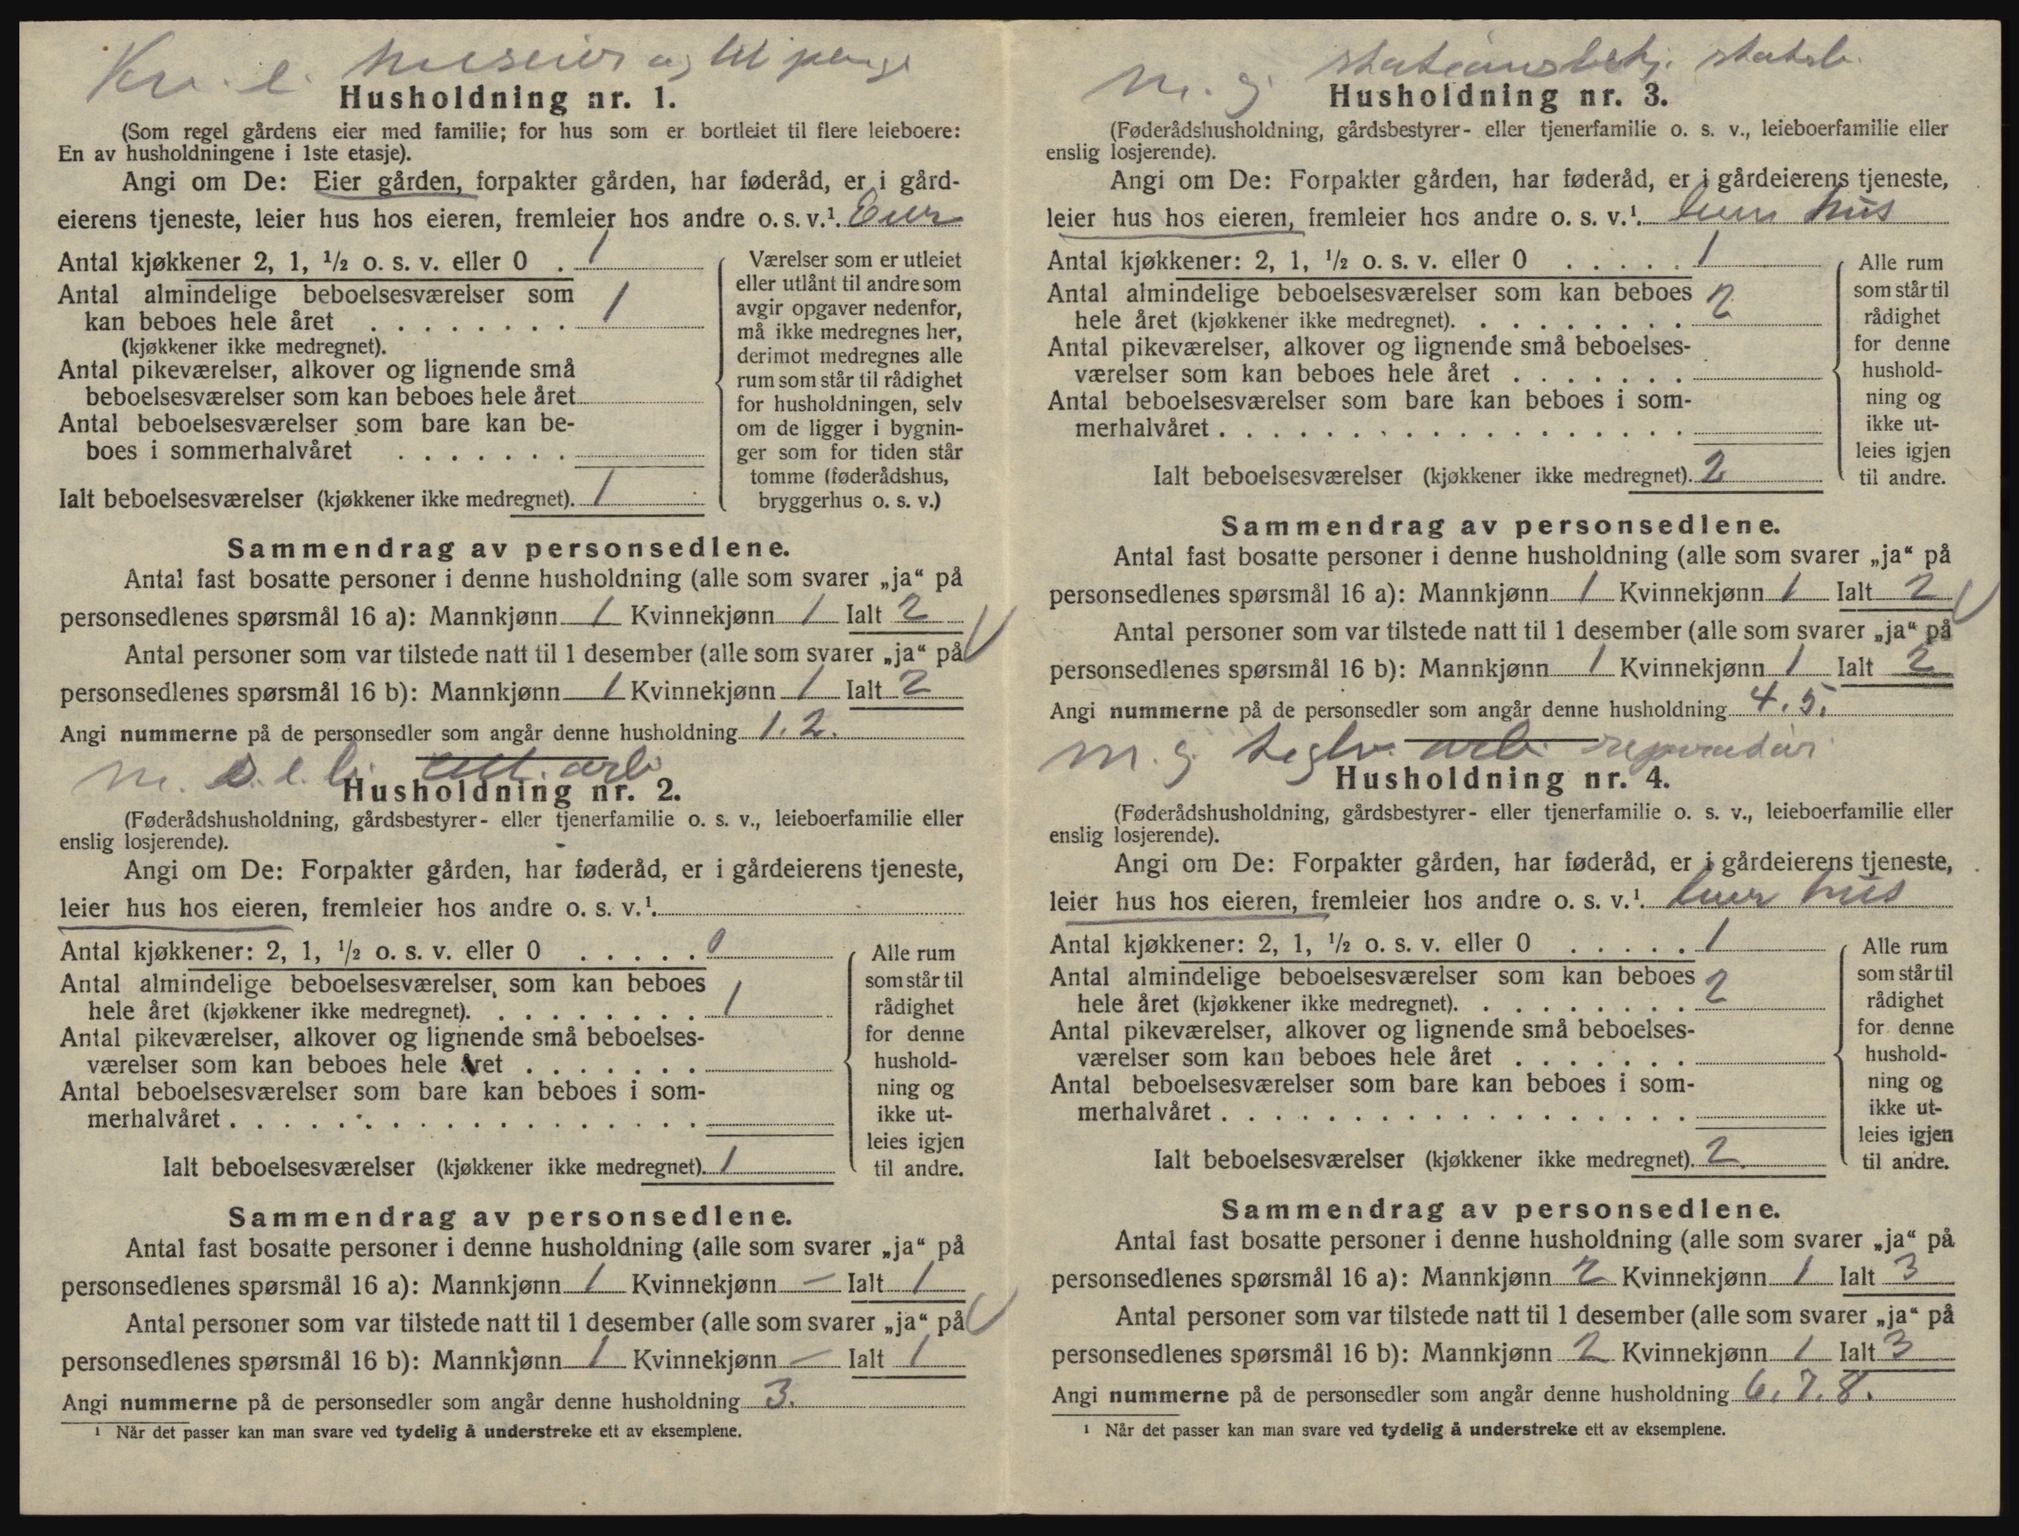 Kv. e. huseier og litt penge
Husholdning nr. 1.
(Som regel gårdens eier med familie; for hus som er bortleiet til flere leieboere:
En av husholdningene i 1ste etasje).
Angi om De: Eier gården, forpakter gården, har føderåd, er i gård-
eierens tjeneste, leier hus hos eieren, fremleier hos andre o. s. v.¹. Eier
Antal kjøkkener 2, 1, ½ o. s. v. eller 0 . 1
Antal almindelige beboelsesværelser som
kan beboes hele året . . . . . . . . 1
(kjøkkener ikke medregnet).
Antal pikeværelser, alkover og lignende små
beboelsesværelser som kan beboes hele året
Antal beboelsesværelser som bare kan be-
boes i sommerhalvåret . . . . . . .
Ialt beboelsesværelser (kjøkkener ikke medregnet). 1
Værelser som er utleiet
eller utlånt til andre som
avgir opgaver nedenfor,
må ikke medregnes her,
derimot medregnes alle
rum som står til rådighet
for husholdningen, selv
om de ligger i bygnin-
ger som for tiden står
tomme (føderådshus,
bryggerhus o. s. v.)
Sammendrag av personsedlene.
Antal fast bosatte personer i denne husholdning (alle som svarer „ja“ på
personsedlenes spørsmål 16 a): Mannkjønn 1 Kvinnekjønn 1 Ialt 2
Antal personer som var tilstede natt til 1 desember (alle som svarer „ja“ på
personsedlenes spørsmål 16 b): Mannkjønn 1 Kvinnekjønn 1 Ialt 2
Angi nummerne på de personsedler som angår denne husholdning 1. 2.
arb
Husholdning nr. 2.
(Føderådshusholdning, gårdsbestyrer- eller tjenerfamilie o. s. v., leieboerfamilie eller
enslig losjerende).
Angi om De: Forpakter gården, har føderåd, er i gårdeierens tjeneste,
leier hus hos eieren, fremleier hos andre o. s. v.¹.
Antal kjøkkener: 2, 1, ½ o. s. v. eller 0 . . . . . 0
Antal almindelige beboelsesværelser som kan beboes
hele året (kjøkkener ikke medregnet). . . . . . . . . 1
Antal pikeværelser, alkover og lignende små beboelses-
værelser som kan beboes hele året . . . . . . .
Antal beboelsesværelser som bare kan beboes i som-
merhalvåret . . . . . . . . . . . . . . . . . .
Ialt beboelsesværelser (kjøkkener ikke medregnet). 1
Alle rum
som står til
rådighet
for denne
hushold-
ning og
ikke ut-
leies igjen
til andre.
Sammendrag av personsedlene.
Antal fast bosatte personer i denne husholdning (alle som svarer „ja“ på
personsedlenes spørsmål 16 a): Mannkjønn 1 Kvinnekjønn — Ialt 1
Antal personer som var tilstede natt til 1 desember (alle som svarer „ja“ på
personsedlenes spørsmål 16 b): Mannkjønn 1 Kvinnekjønn — Ialt 1
Angi nummerne på de personsedler som angår denne husholdning 3.
¹ Når det passer kan man svare ved tydelig å understreke ett av eksemplene.
m. g. stationsbetj. statsb.
Husholdning nr. 3.
(Føderådshusholdning, gårdsbestyrer- eller tjenerfamilie o. s. v., leieboerfamilie eller
enslig losjerende).
Angi om De: Forpakter gården, har føderåd, er i gårdeierens tjeneste,
leier hus hos eieren, fremleier hos andre o. s. v.¹. leier hus
Antal kjøkkener: 2, 1, ½ o. s. v. eller 0 . . . . . 1
Antal almindelige beboelsesværelser som kan beboes
hele året (kjøkkener ikke medregnet). . . . . . . . . 2
Antal pikeværelser, alkover og lignende små beboelses-
værelser som kan beboes hele året . . . . . . .
Antal beboelsesværelser som bare kan beboes i som-
merhalvåret . . . . . . . . . . . . . . . . . .
Ialt beboelsesværelser (kjøkkener ikke medregnet). 2
Alle rum
som står til
rådighet
for denne
hushold-
ning og
ikke ut-
leies igjen
til andre.
Sammendrag av personsedlene.
Antal fast bosatte personer i denne husholdning (alle som svarer „ja“ på
personsedlenes spørsmål 16 a): Mannkjønn 1 Kvinnekjønn 1 Ialt 2
Antal personer som var tilstede natt til 1 desember (alle som svarer „ja“ på
personsedlenes spørsmål 16 b): Mannkjønn 1 Kvinnekjønn 1 Ialt 2
Angi nummerne på de personsedler som angår denne husholdning 4. 5.
m. g. teglv. arb. reparatør
Husholdning nr. 4.
(Føderådshusholdning, gårdsbestyrer- eller tjenerfamilie o. s. v., leieboerfamilie eller
enslig losjerende).
Angi om De: Forpakter gården, har føderåd, er i gårdeierens tjeneste,
leier hus hos eieren, fremleier hos andre o. s. v.¹. leier hus
Antal kjøkkener: 2, 1, ½ o. s. v. eller 0 . . . . . 1
Antal almindelige beboelsesværelser som kan beboes
hele året (kjøkkener ikke medregnet). . . . . . . . . 2
Antal pikeværelser, alkover og lignende små beboelses-
værelser som kan beboes hele året . . . . . . .
Antal beboelsesværelser som bare kan beboes i som-
merhalvåret . . . . . . . . . . . . . . . . . .
Ialt beboelsesværelser (kjøkkener ikke medregnet). 2
Alle rum
som står til
rådighet
for denne
hushold-
ning og
ikke ut-
leies igjen
til andre.
Sammendrag av personsedlene.
Antal fast bosatte personer i denne husholdning (alle som svarer „ja“ på
personsedlenes spørsmål 16 a): Mannkjønn 2 Kvinnekjønn 1 Ialt 3
Antal personer som var tilstede natt til 1 desember (alle som svarer „ja“ på
personsedlenes spørsmål 16 b): Mannkjønn 2 Kvinnekjønn 1 Ialt 3
Angi nummerne på de personsedler som angår denne husholdning 6. 7. 8.
¹ Når det passer kan man svare ved tydelig å understreke ett av eksemplene.